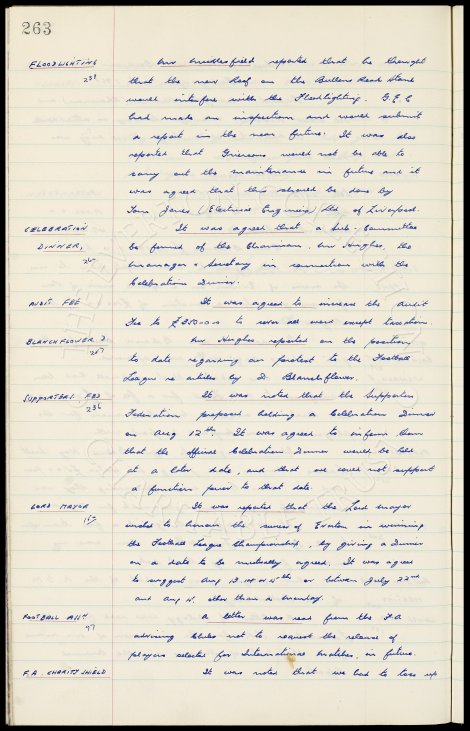 263
FLOODLIGHTING
239
Mr Micklesfield reported that he thought
that the new Roof on the Bullens Road Stand
would interfere with the Floodlighting. G.E.C
had made an inspection and would submit
a report in the near future. It was also
reported that Griersons would not be able to
carry out the maintenance in future and it
was agreed that this should be done by
Tom Jones (Electrical Engineers) Ltd of Liverpool.
CELEBRATION
DINNER,
It was agreed that a Sub-Committee
be formed of the Chairman, Mr Hughes, the
Manager & Secretary in connection with the
Celebration Dinner.
AUDIT FEE
It was agreed to increase the Audit
Fee to £350-0-0 to cover all work except taxation
BLANCHFLOWER D.
257
Mr Hughes reported on the position
to date regarding our protest to the Football
League re articles by D. Blanchflower.
SUPPORTERS FED
236
It was noted that the Supporters
Federation proposed holding a Celebration Dinner
on Aug 12th. It was agreed to inform them
that the official Celebration Dinner would be held
at a later date, and that we could not support
a function prior to that date.
LORD MAYOR
It was reported that the Lord Mayor
wished to honour the success of Everton in winning
the Football League Championship, by giving a Dinner
on a date to be mutually agreed. It was agreed
to suggest Aug 13. 14th or 15th or between July 22nd
and Aug 10, other than a Monday.
FOOTBALL ASSN
97
A letter was read from the F.A
advising Clubs not to request the release of
players selected for International Matches, in future.
F.A. CHARITY SHIELD
It was noted that we had to toss up